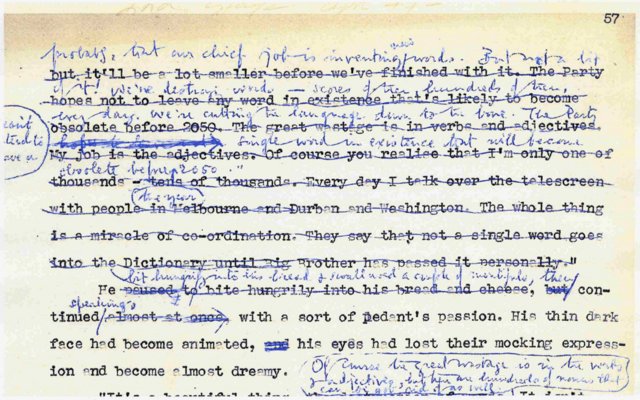 57
probably, that our chief job is inventing new words. But not a bit
but it'll be a lot smaller before we've finished with it. The Party
of it! We're destroying words — scores of them, hundreds of them,
hopes not to leave any word in existence that's likely to become
every day. We're cutting the language down to the bone. The Party
obsolete before 2050. The great wastage is in verbs and adjectives.
tend to
ave a
single word in existence that will become
My job is the adjectives. Of course you realise that I'm only one of
obsolete before 2050."
thousands - tens of thousands. Every day I talk over the telescreen
the year
with people in Melbourne and Durban and Washington. The whole thing
is a miracle of co-ordination. They say that not a single word goes
into the Dictionary until Big Brother has passed it personally."
bit hungrily into his bread & swallowed a couple of mouthfuls, then
He paused to bite hungrily into his bread and cheese, but con-
speaking,
tinued almost at once, with a sort of pedant's passion. His thin dark
face had become animated, and his eyes had lost their mocking express-
ion and become almost dreamy.
Of course the great wastage is in the verbs
& adjectives, but there are hundreds of nouns that
can be got rid of as well.
"It's a beautiful thing